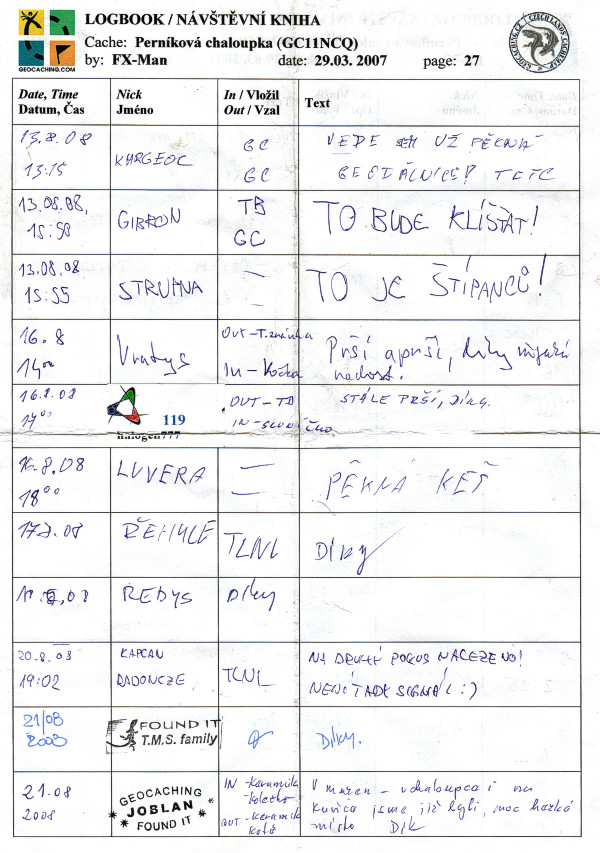 LOGBOOK / NÁVŠTĚVNÍ KNIHA
Cache: Perníková chaloupka (GC11NCQ)
by: FX-Man date: 29.03. 2007 page: 27
GEOCACHING.COM
Date, Time Nick In / Vložil Text
Datum, Čas Jméno Out / Vzal
13.8.08 KARGEOC GC VEDE SEM UŽ PĚKNÁ
13:15 GC TFTC
13.08.08, GIBBON TB TO BUDE KLÍŠŤAT!
15:50 GC
13.08.08 STRUHNA — TO JE ŠTÍPANCŮ!
15:55 —
16.8 Vratys OUT-T.známka Prší a prší, díky
14 00 In-Kočka radost.
16.8.08 119 OUT-TB STÁLE PRŠÍ, DÍKY.
17 00 halogen777 IN-SLUNÍČKO
16.8.08 LUVERA — PĚKNÁ KEŠ
18 00 —
17.8.08 ŘEHULE TLNL Díky
REDYS Díky
20.8.08 KAPCAN TLNL NA DRUHÝ POKUS NALEZENO!
19:02 DADONCZE NENÍ TADY SIGNÁL :)
21/08 FOUND IT Díky.
2008 T.M.S. family
21.08 GEOCACHING IN - keramika
2008 JOBLAN kolečko
FOUND IT OUT - keramika
V - v chaloupce i na
jsme již byli, moc hezké
místo Dík